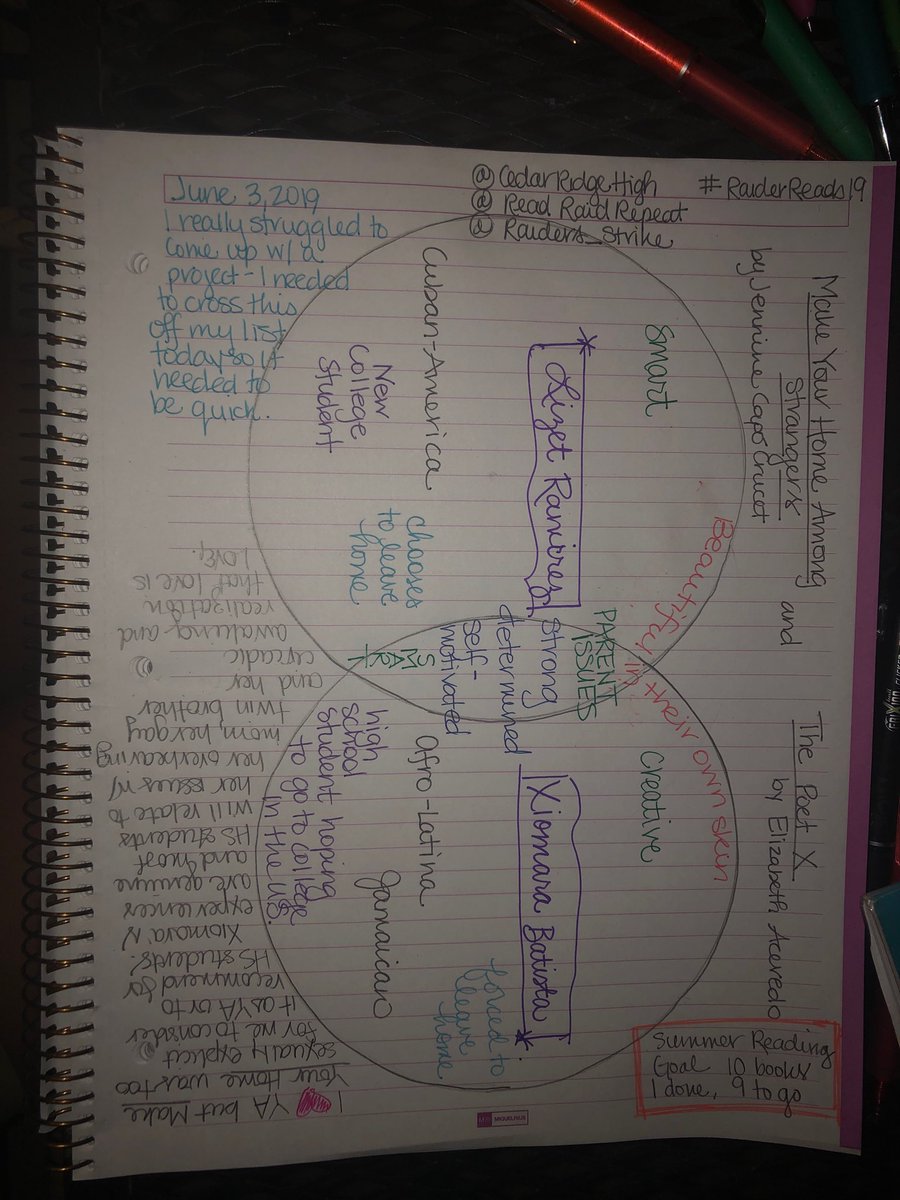 June 3, 2019
I really struggled to
come up w/ a
project - I needed
to cross this
off my list
today so it
needed to
be quick.
@CedarRidgeHigh
@ Read Raid Repeat
@ Raiders_Strike
#RaiderReads19
Make Your Home Among
Strangers
by Jennine Capó Crucet
and
The Poet X
by Elizabeth Acevedo
Summer Reading
Goal 10 books
1 done, 9 to go
Beautiful in their own skin
Smart
* Lizet Ramirez
Cuban-America
New
College
Student
chooses
to leave
home
PARENT
ISSUES
strong
determined
self-
motivated
SMART
Creative
Xiomara Batista *
Afro-Latina
Jamaican
forced to
leave
home
high
school
student hoping
to go to college
in the U.S.
I YA but Make
Your Home was too
sexually explicit
for me to consider
it as YA or to
recommend for
HS students.
Xiomara's
experiences
are genuine
and most
HS students
will relate to
her issues w/
her overbearing
mom, her gay
twin brother
and her
awaking and
realization
that love is
LOVE.
MIQUELRIUS